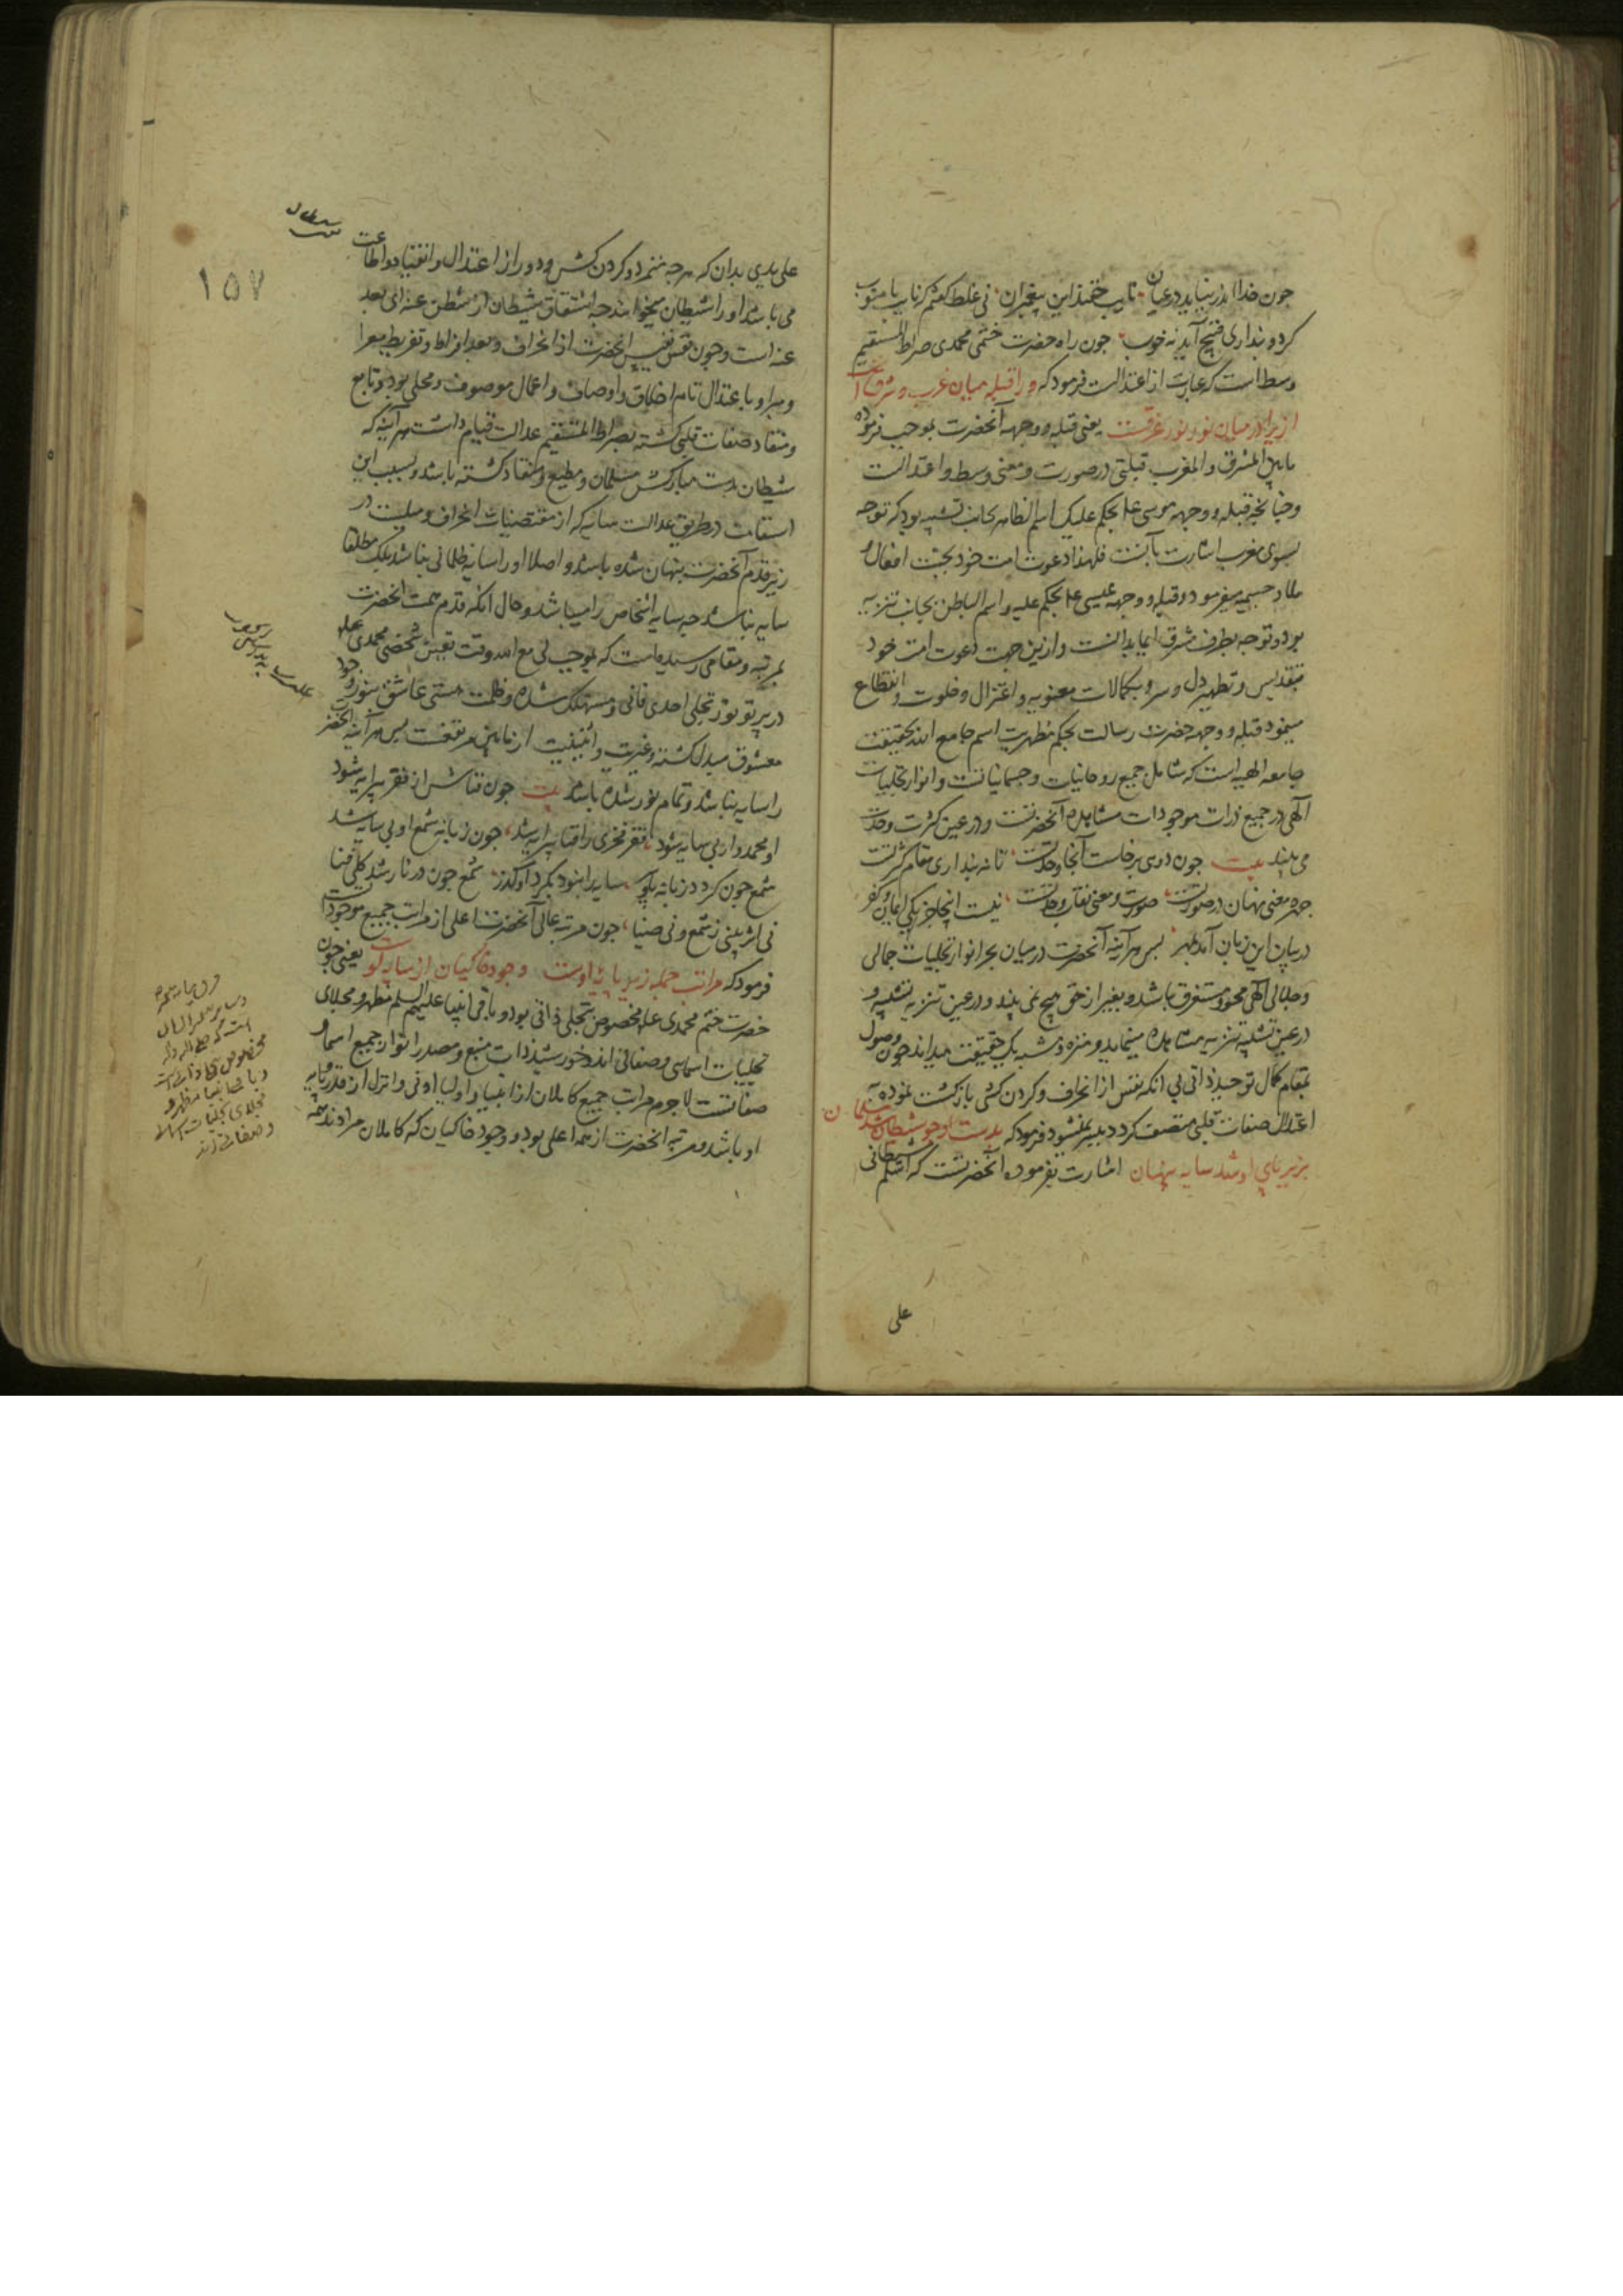 چون خدا اندر نیاید در عیان نایب حقند این پیغمبران نی غلط گفتم که نایب با منوب
کر دو پنداری قبیح آید نه خوب چون راه حضرت ختمی محمدی صراط المستقیم
وسط است که عبارت از اعتدالست فرمود که ورا قبله میان غرب و شرق است
ازیرا در میان نور غرقست یعنی قبله و وجهه آنحضرت بموجب فرموده
مابین المشرق و المغرب قبلتی در صورت و معنی وسط و اعتدالست
و چنانچه قبله و وجهه موسی علم بحکم علیک اسم الظاهر بجانب تشبیه بود که توجه
بسوی مغرب اشارت بآنست فلهذا دعوت امت خود بجنت افعال و
ملاذ جسمیه میفرمود و قبله و وجهه عیسی علم بحکم علیه اسم الباطن بجانب تنزیه
بود و توجه بطرف مشرق ایما بدانست و ازین جهت دعوت امت خود
بتقدیس و تطهیر دل و سر و بکمالات معنویه و اعتزال و خلوت و انقطاع
مینمود قبله و وجهه حضرت رسالت بحکم مظهریت اسم جامع الله بحقیقت
جامعه الهیه است که شامل جمیع روحانیات و جسمانیاتست و انوار تجلیات
الهی در جمیع ذرات موجودات مشاهده آنحضرتست و در عین کثرت وحدت
می بیند بیت چون دوی برخاست آنجا وحدتست تا نه پنداری مقام کثرتست
چهره معنی نهان در صورتست صورت و معنی نقاب وحدتست نیست اینجا جز یکی ایمان و کفر
در بیان این زبان آمد بهر پس هر آینه آنحضرت در میان بحر انوار تجلیات جمالی
و جلالی الهی محو و مستغرق باشد و بغیر از حق هیچ نمی بیند و در عین تنزیه تشبیه و
در عین تشبیه تنزیه مشاهده مینماید و منزه و مشبه یک حقیقت میداند چون وصول
بمقام کمال توحید ذاتی بی آنکه نفس از انحراف و کردن کشی بازگشت نموده
اعتدال صفات قلبی متصف کردد میسر نمیشود فرمود که بدست او چو شیطان شد مسلمان
بزیر پای او شد سایه پنهان اشارت بفرموده آنحضرتست که اسلم شیطانی
علی
علی یدی بدان که هر چه متمرد و کردن کش و دور از اعتدال و انقیاد و اطاعت
می باشد او را شیطان میخوانند چه اشتقاق شیطان از شطن عنه ای بعد
عنه است و چون نفس نفیس آنحضرت از انحراف و بعد افراط و تفریط معرا
و مبرا و با عتدال تام اخلاق و اوصاف و اعمال موصوف و محلی بود و تابع
و منقاد صفات قلبی کشته بصراط المستقیم عدالت قیام داشت هر آینه که
شیطان بدست مبارکش مسلمان و مطیع و منقاد کشته باشد و بسبب این
استقامت در طریق عدالت سایه که از مقتضیات انحراف و میلست در
زیر قدم آنحضرت پنهان شده باشد و اصلا او را سایه ظلمانی نباشد بلک مطلقا
سایه نباشد چه سایه اشخاص را میباشد و حال آنکه قدم همت آنحضرت
بمرتبه و مقامی رسیده است که بموجب لی مع الله وقت تعین شخصی محمدی علم
در پرتو نور تجلی احدی فانی و مستهلک شده و ظلمت هستی عاشق بنور وجود
معشوق مبدل کشته و غیریت و اثنینیت از مابین مرتفعست پس هر آینه آنحضرت
را سایه نباشد و تمام نور شده باشد بیت چون فناش از فقر پیرایه شود
او محمد وار بی سایه شود فقر فخری را فنا پیرایه شد چون زبانه شمع او بی سایه شد
شمع چون کردد زبانه پا و سر سایه را نبود بکرد او کذر شمع چون در نار شد کلی فنا
نی اثر بینی ز شمع و نی ضیا چون مرتبه عالی آنحضرت اعلی از مراتب جمیع موجوداتست
فرمود که مراتب جمله زیر پایه اوست وجود خاکیان از سایه اوست یعنی چون
حضرت ختم محمدی علم مخصوص بتجلی ذاتی بود و باقی انبیا علیهم السلم مظهر و مجلای
تجلیات اسمائی و صفاتی اند و خورشید ذات منبع و مصدر انوار جمیع اسما و
صفاتست لاجرم مراتب جمیع کاملان از انبیا و اولیا ادنی و انزل از قدر و پایه
او باشد و مرتبه آنحضرت از همه اعلی بود و وجود خاکیان که کاملان مرادند همه
١٥٧
فرق میان
است که
مخصوص تجلی ذاتی است
و باقی انبیا مظهر و
مجلای تجلیات اسمائی
و صفاتی اند